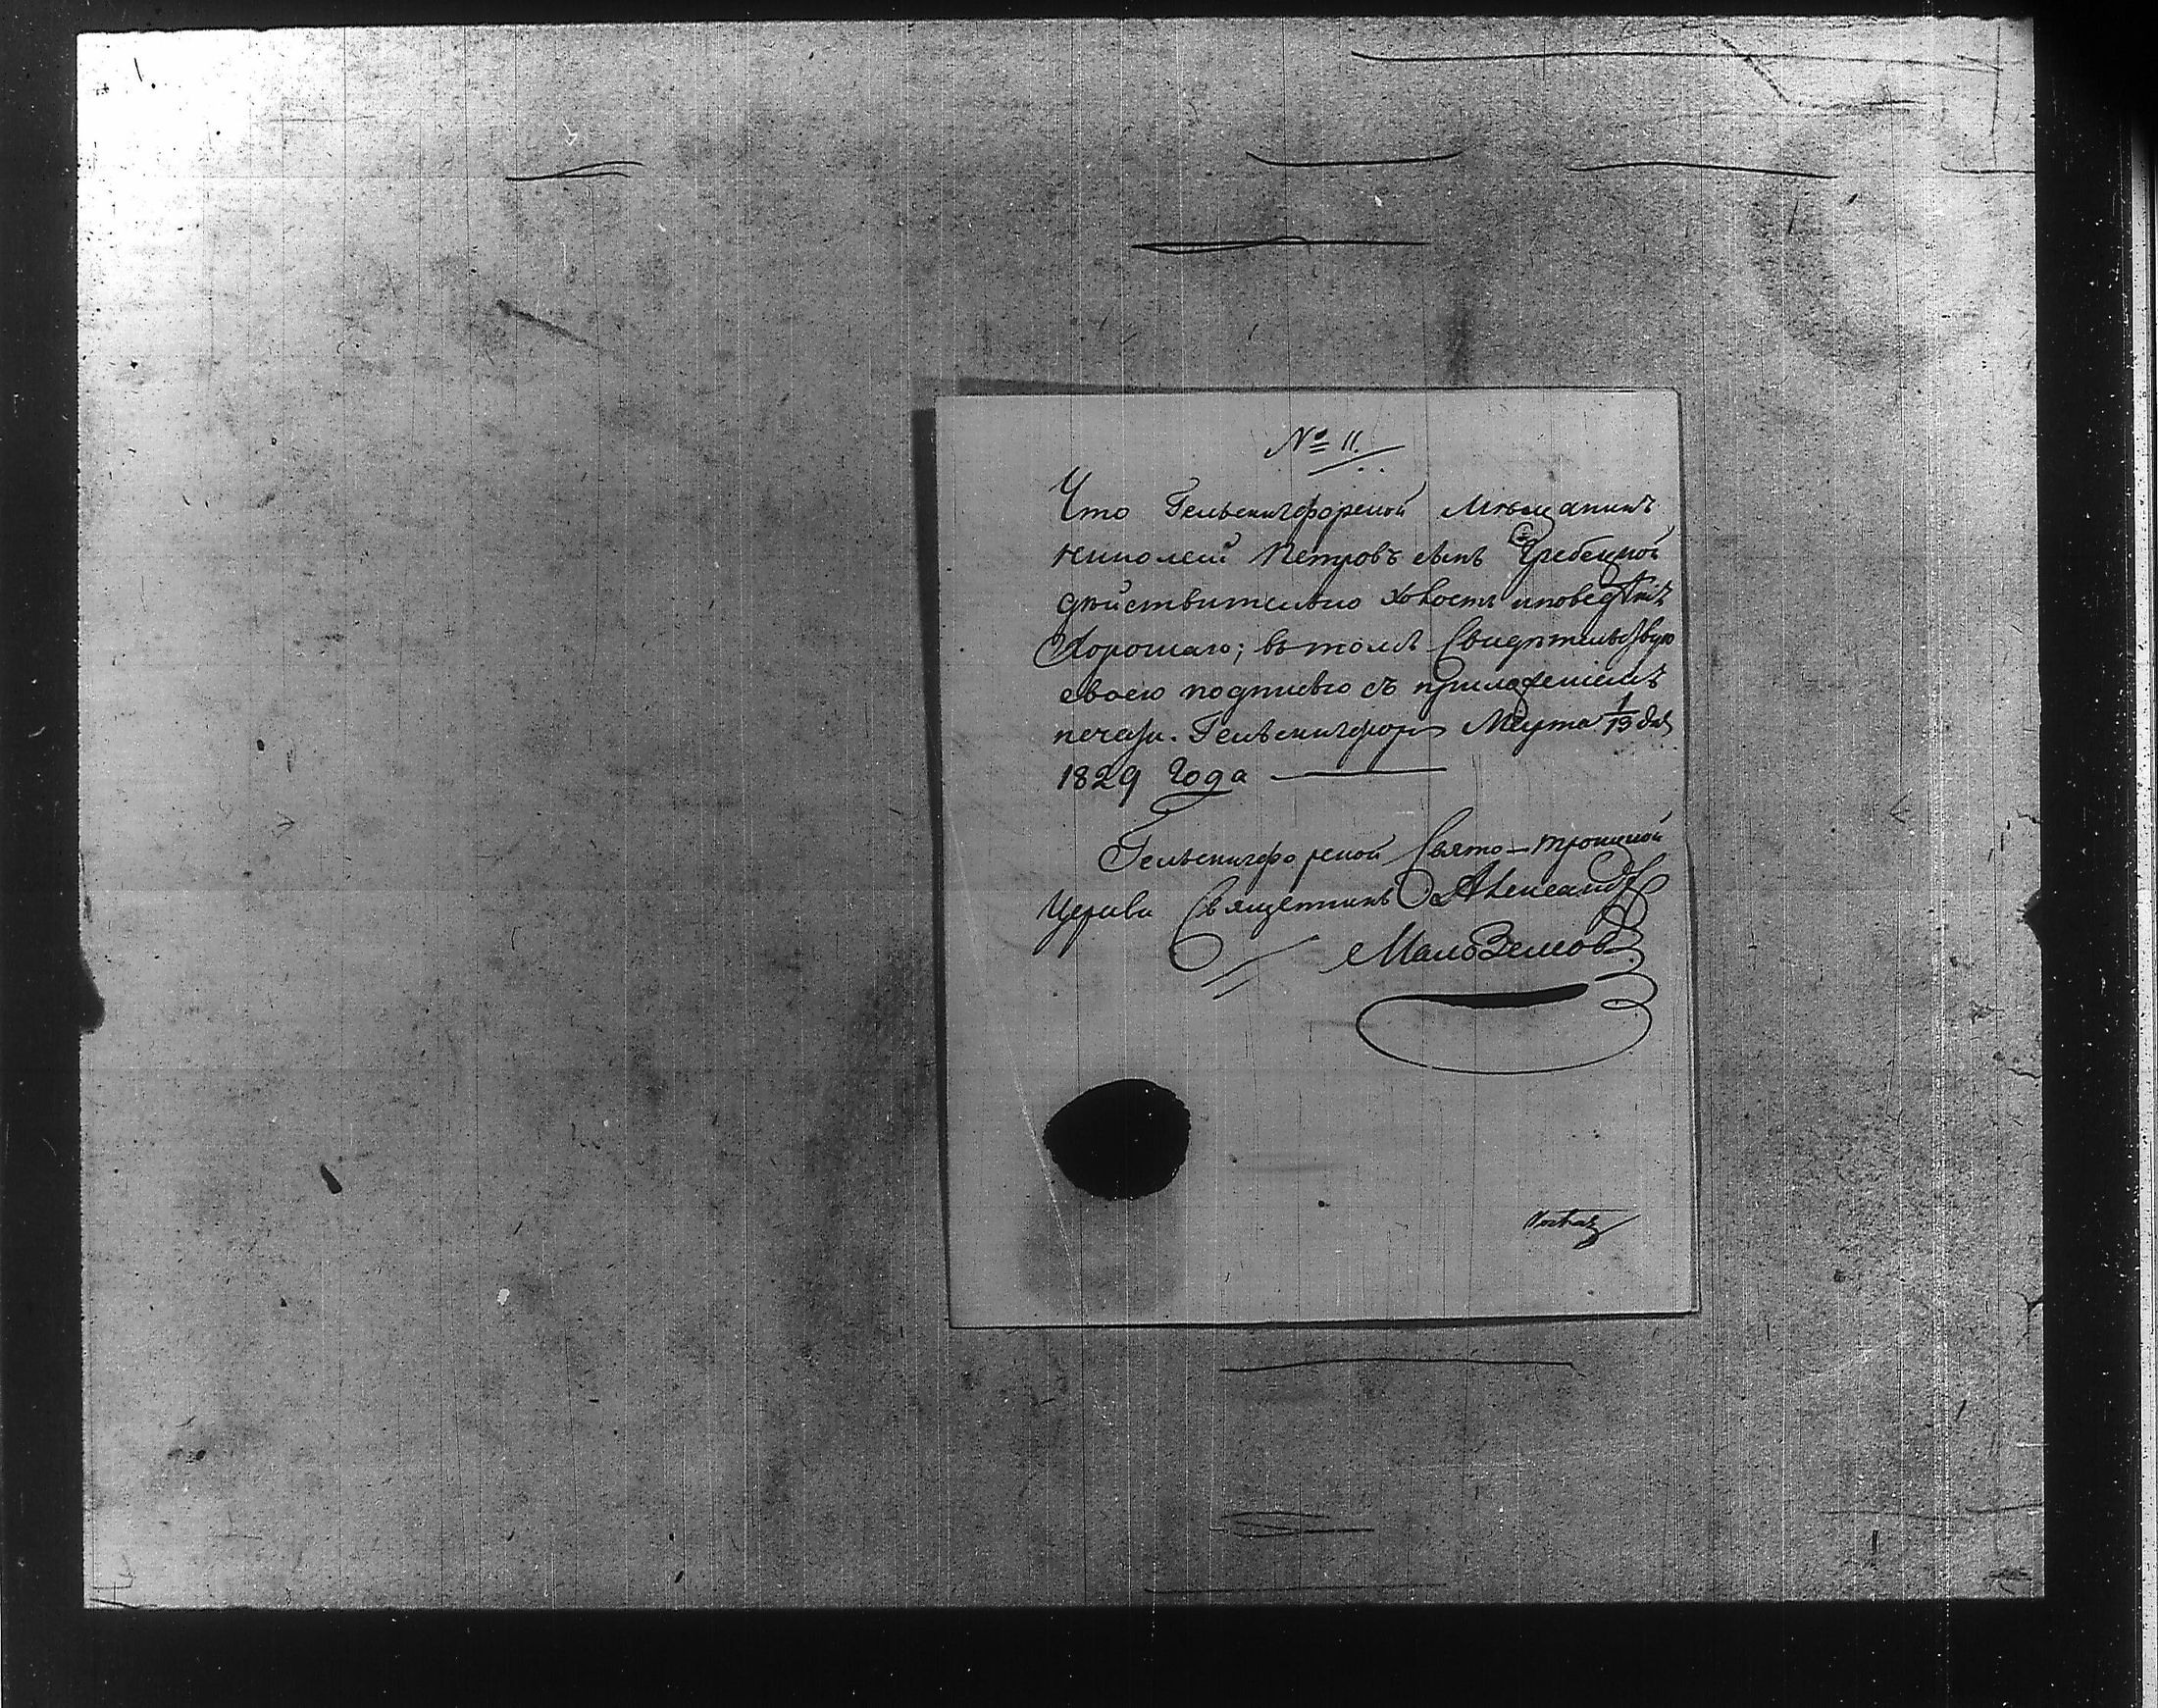 № 11.
Что Гельсингфорской Мѣщанинъ
Николай Петровъ сынъ Гребецкой
дѣйствительно холостъ и поведѣнiя
хорошаго; въ томъ Свидѣтельствую
своею подписью съ приложенiемъ
печати. Гельсингфорс Марта 1/13 дня
1829 Года
Гельсингфорской Свято-троицкой
Церкви Священникъ Александръ
Малоземовъ